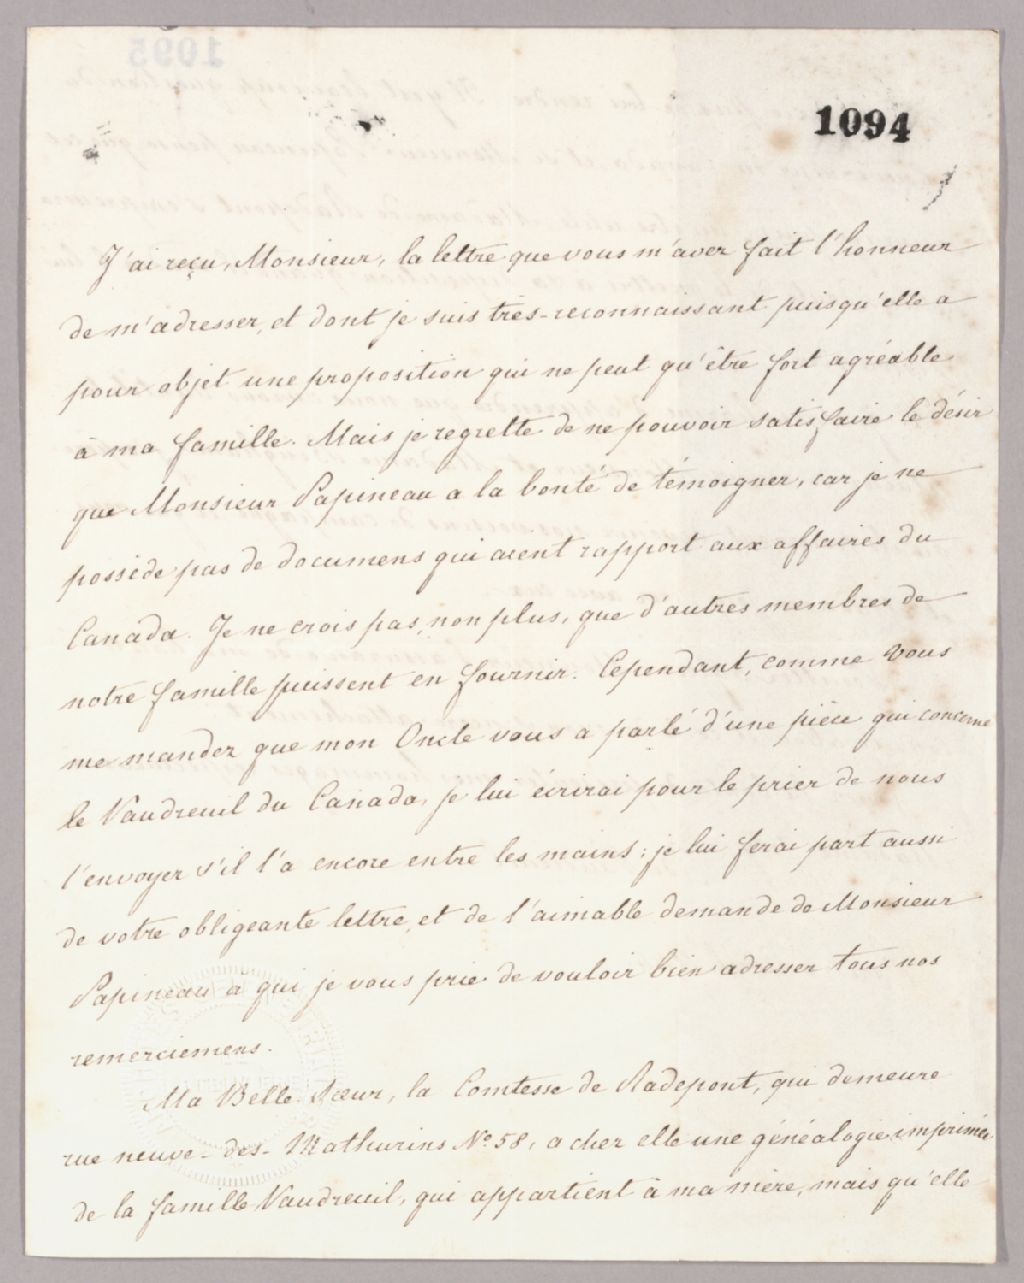 1094
J'ai reçu, Monsieur, la lettre que vous m'avez fait l'honneur
de m'adresser, et dont je suis très-reconnaissant puisqu'elle a
pour objet une proposition qui ne peut qu'être fort agréable
à ma famille. Mais je regrette de ne pouvoir satisfaire le désir
que Monsieur Papineau a la bonté de témoigner, car je ne
possède pas de documens qui aient rapport aux affaires du
Canada. Je ne crois pas, non plus, que d'autres membres de
notre famille puissent en fournir. Cependant, comme vous
me mandez que mon Oncle vous a parlé d'une pièce qui concerne
le Vaudreuil du Canada, je lui écrirai pour le prier de nous
l'envoyer s'il l'a encore entre les mains; je lui ferai part aussi
de votre obligeante lettre, et de l'aimable demande de Monsieur
Papineau à qui je vous prie de vouloir bien adresser tous nos
remerciemens.
Ma Belle-Sœur, la Comtesse de Radepont, qui demeure
rue neuve-des-Mathurins No 58, a chez elle une généalogie imprimée
de la famille Vaudreuil, qui appartient à ma mère, mais qu'elle